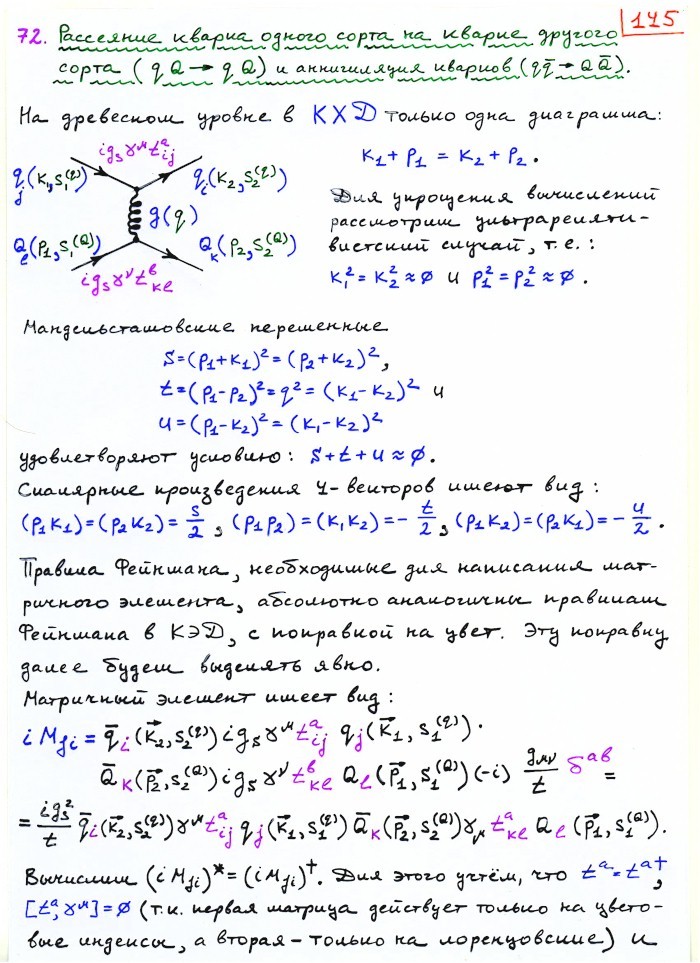 145
72. Рассеяние кварка одного сорта на кварке другого
сорта (qQ → qQ) и аннигиляция кварков (qq̄ → QQ̄).
На древесном уровне в КХД только одна диаграмма:
ig_s γ^μ t^a_{ij}
k₁ + p₁ = k₂ + p₂.
q_j(k₁, s₁^{(q)}) q_i(k₂, s₂^{(q)})
g(q)
Q_l(p₁, s₁^{(Q)}) Q_k(p₂, s₂^{(Q)})
ig_s γ^ν t^b_{kl}
Для упрощения вычислений
рассмотрим ультрареляти-
вистский случай, т.е.:
k₁² = k₂² ≈ 0 и p₁² = p₂² ≈ 0.
Мандельстамовские переменные
s = (p₁+k₁)² = (p₂+k₂)²,
t = (p₁-p₂)² = q² = (k₁-k₂)² и
u = (p₁-k₂)² = (k₁-k₂)²
удовлетворяют условию: s+t+u ≈ 0.
Скалярные произведения 4-векторов имеют вид:
(p₁k₁) = (p₂k₂) = s/2, (p₁p₂) = (k₁k₂) = -t/2, (p₁k₂) = (p₂k₁) = -u/2.
Правила Фейнмана, необходимые для написания мат-
ричного элемента, абсолютно аналогичны правилам
Фейнмана в КЭД, с поправкой на цвет. Эту поправку
далее будем выделять явно.
Матричный элемент имеет вид:
iM_{fi} = q̄_i(k⃗₂, s₂^{(q)}) ig_s γ^μ t^a_{ij} q_j(k⃗₁, s₁^{(q)}) ·
Q̄_k(p⃗₂, s₂^{(Q)}) ig_s γ^ν t^b_{kl} Q_l(p⃗₁, s₁^{(Q)}) (-i) g_{μν}/t δ^{ab} =
= ig_s²/t q̄_i(k⃗₂, s₂^{(q)}) γ^μ t^a_{ij} q_j(k⃗₁, s₁^{(q)}) Q̄_k(p⃗₂, s₂^{(Q)}) γ_μ t^a_{kl} Q_l(p⃗₁, s₁^{(Q)}).
Вычислим (iM_{fi})* = (iM_{fi})†. Для этого учтём, что t^a = t^{a†},
[t^a, γ^μ] = 0 (т.к. первая матрица действует только на цвето-
вые индексы, а вторая - только на лоренцовские) и